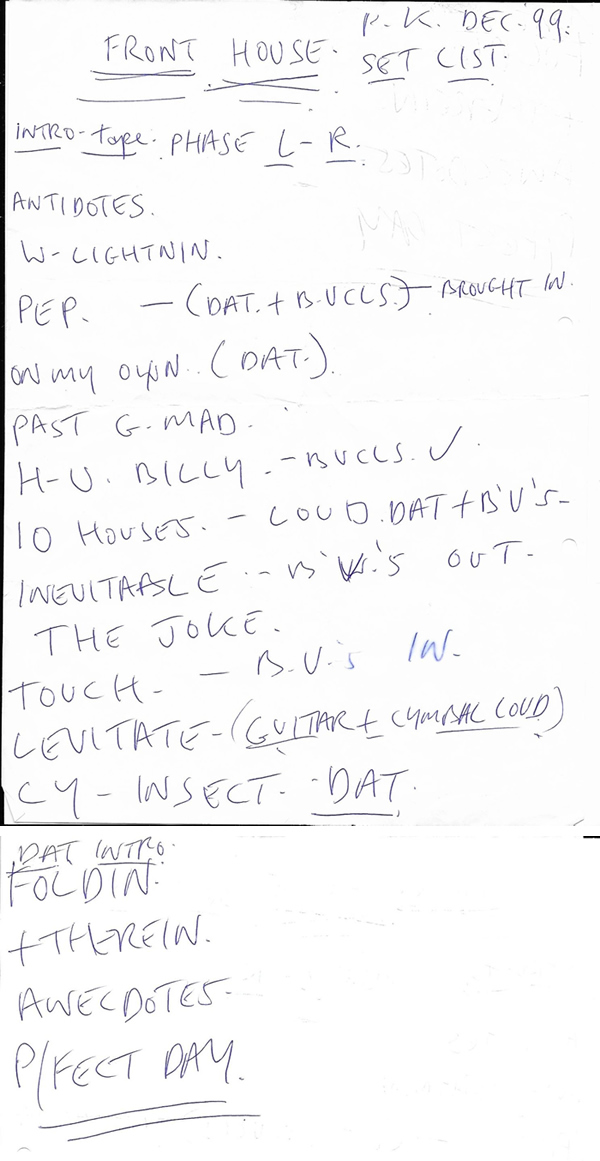 P. K. DEC. 99.
FRONT HOUSE. SET LIST.
INTRO-tape. PHASE L - R.
ANTIDOTES.
W-LIGHTNIN.
PEP. — (DAT. + B.VCLS.) — BROUGHT IN.
ON MY OWN. (DAT.).
PAST G. MAD.
H-U. BILLY. - BVCLS. ✓.
10 HOUSES. - LOUD. DAT + B'V'S -
INEVITABLE - B'V.'S OUT -
THE JOKE.
TOUCH - — B.V.'s IN.
LEVITATE - (GUITAR + CYMBAL LOUD)
CY - INSECT. - DAT.
DAT INTRO.
FOLDIN.
+ THEREIN.
ANECDOTES -
P/FECT DAY.